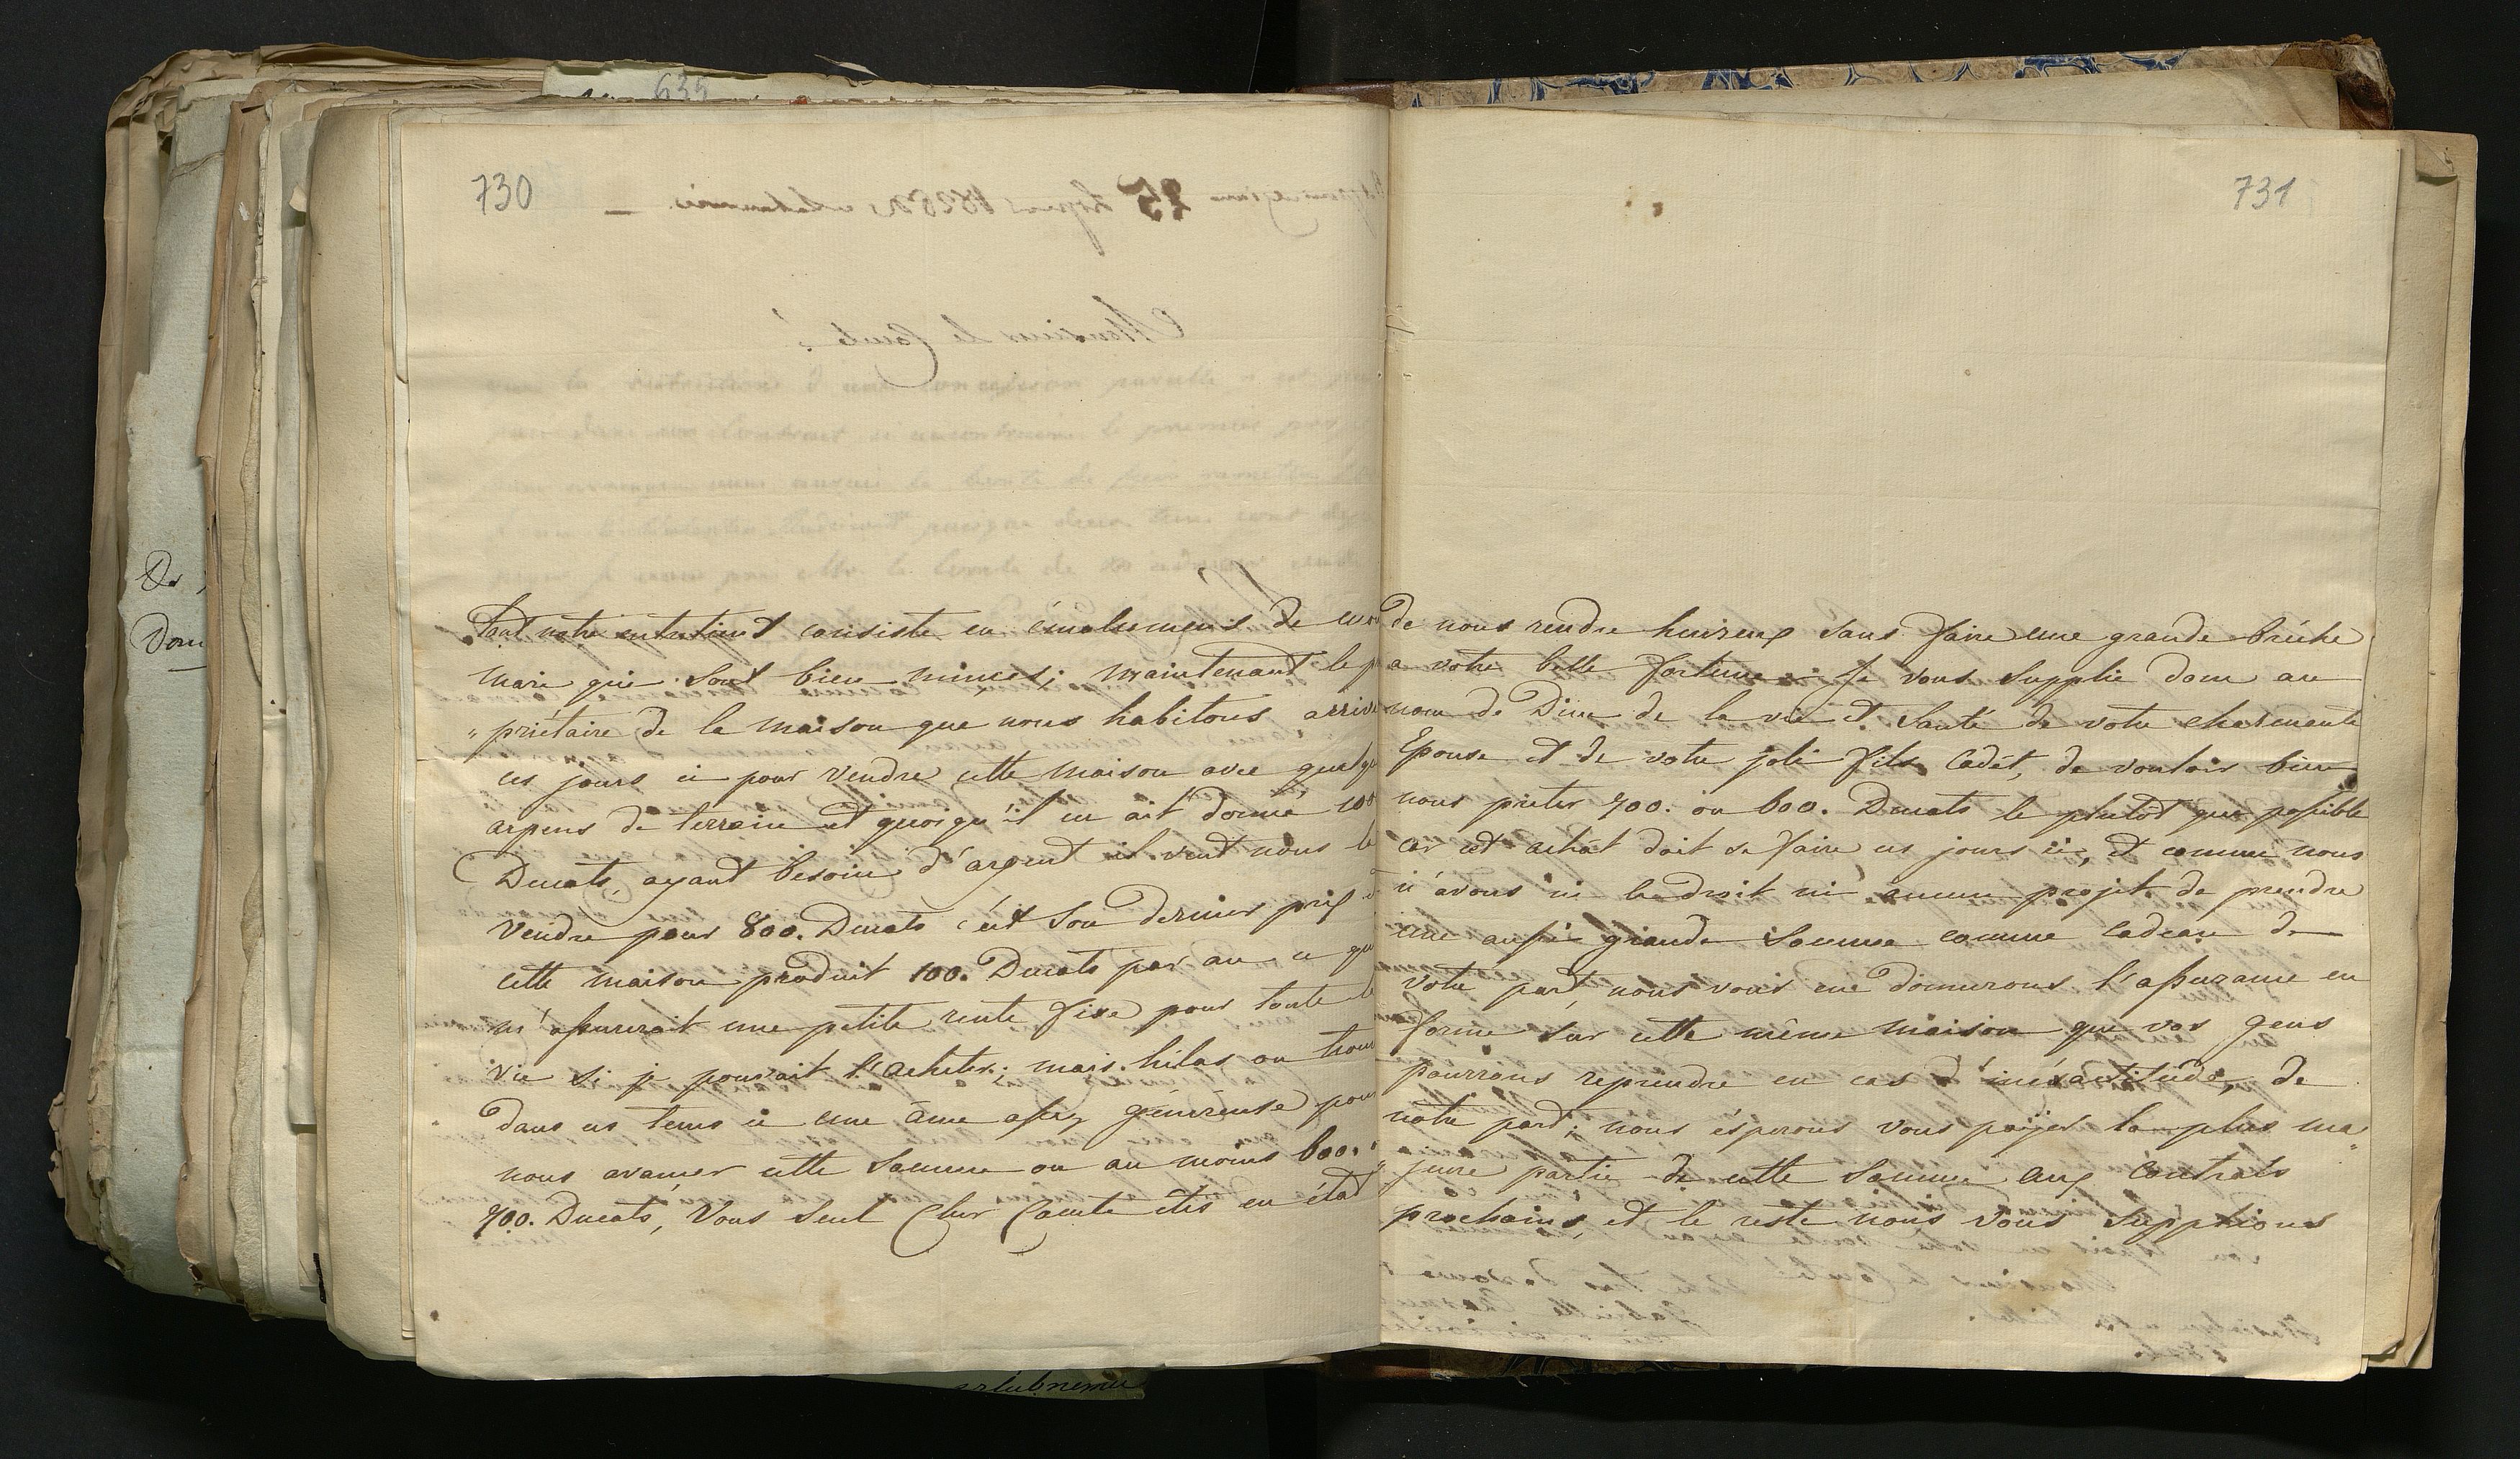 635
730
Tout notre entretient consiste en émolumens de mon
mari qui sont bien minces; maintenant le p
„priétaire de la maison que nous habitons arrive
ces jours ci pour vendre cette maison avec quelq
arpens de terrain et quoiqu'il en ait donné
Ducats, ayant besoin d'argent il veut nous le
vendre pour 800. Ducats c'est son dernier prix
cette maison produit 100. Ducats par an ce qui
m'assurerait une petite rente fixe pour toute le
vie si je pouvait l'acheter; mais hélas ou trou
dans ces tems ci une âme assez généreuse pour
nous avancer cette somme ou au moins 600.
700. Ducats, Vous seul Cher Comte etes en état
731
de nous rendre heureux sans faire une grande brêche
a votre belle fortune. Je vous supplie donc au
nom de Dieu de la vie et santé de votre charmante
Epouse et de votre joli fils Cadèt, de vouloir bien
nous prêter 700. ou 600. Ducats le plutôt que possible
car cet achat doit se faire ces jours ci, et comme nous
n'avons ni le droit ni aucun projet de prendre
une aussi grande somme comme Cadeau de
votre part, nous vous en donnerons l'assurance en
forme sur cette même maison que vos gens
pourrons reprendre en cas d'inéxactitude, de
notre part; nous ésperons vous paÿer la plus ma„
„jeure partie de cette somme aux Contrats
prochains, et le reste nous vous supplions
Dom